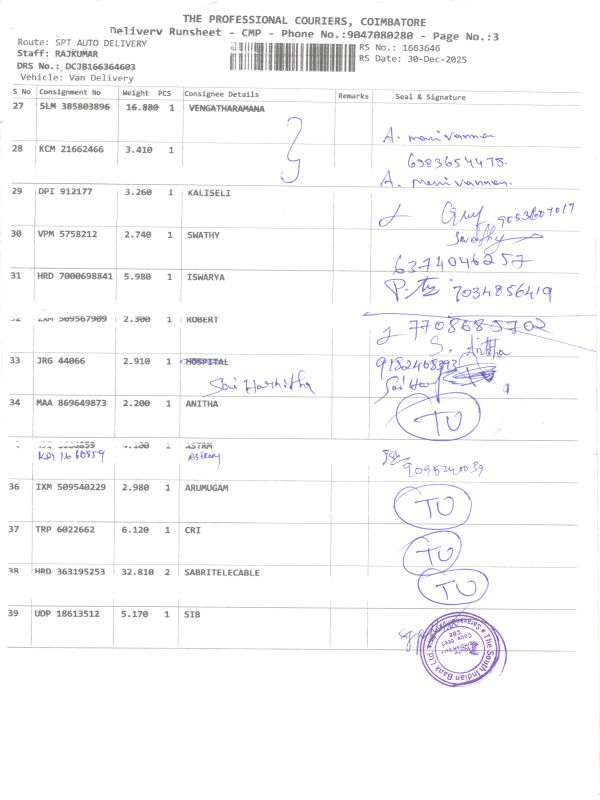 THE PROFESSIONAL COURIERS, COIMBATORE
Delivery Runsheet - CMP - Phone No.:9047080280 - Page No.:3
Route: SPT AUTO DELIVERY
RS No.: 1663646
Staff: RAJKUMAR
RS Date: 30-Dec-2025
DRS No.: DCJB166364603
Vehicle: Van Delivery
S No Consignment No Weight PCS Consignee Details Remarks Seal & Signature
27 SLM 385803896 16.880 1 VENGATHARAMANA
A. manivannan
28 KCM 21662466 3.410 1
6983654478.
A. manivannan.
29 DPI 912177 3.260 1 KALISELI
9053607017
30 VPM 5758212 2.740 1 SWATHY
Swathy
6374046257
31 HRD 7000698841 5.980 1 ISWARYA
7034856419
509567909 2.300 1 ROBERT
7708685702
S. Anitha
33 JRG 44066 2.910 1 HOSPITAL
Sai Harshitha
34 MAA 869649873 2.200 1 ANITHA
TU
1 ASTRM
KDI 1660859
36 IXM 509540229 2.980 1 ARUMUGAM
TU
37 TRP 6022662 6.120 1 CRI
TU
38 HRD 363195253 32.810 2 SABRITELECABLE
TU
39 UDP 18613512 5.170 1 SIB
The South Indian Bank Ltd.